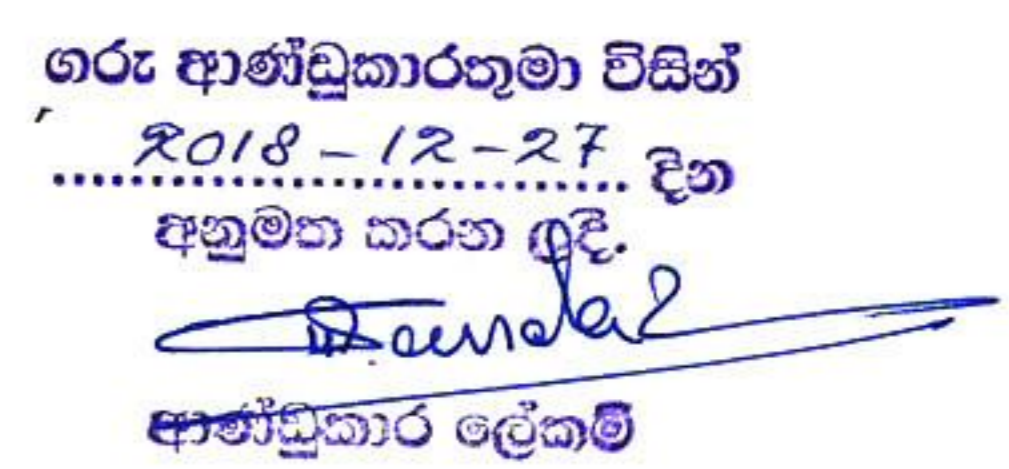 ගරු ආණ්ඩුකාරතුමා විසින්
2018-12-27 දින
අනුමත කරන ලදි.
ආණ්ඩුකාර ලේකම්